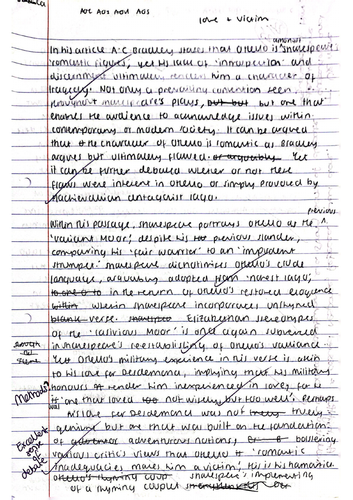 AO1 AO2 AO4 AO5
love + victim
amongst
In his article A.C Bradley states that Othello is "Shakespeare's
romantic figure", yet his lack of 'introspection' and
discernment ultimately renders him a character of
tragedy. Not only a prevailing convention seen
throughout Shakespeare's plays, but but but one that
enables the audience to acknowledge issues within
contemporary or modern society. It can be argued
that the character of Othello is romantic as Bradley
argues but ultimately flawed or arguably. Yet
it can be further debated whether or not these
flaws were inherent in Othello or simply provoked by
Machiavellian antagonist Iago.
previous
Within this passage, Shakespeare portrays Othello as the
'Valiant Moor', despite his previous slander,
comparing his 'fair warrior' to an 'impudent
strumpet'. Shakespeare dichotomises Othello's crude
language, arguably adopted from 'honest Iago',
to the return of Othello's restored eloquence
within wherein Shakespeare incorporates unrhymed
blank verse. Elizabethan stereotypes
of the 'lascivious Moor' is only again subverted
in Shakespeare's reestablishing of Othello's valiance.
Yet Othello's military experience in his verse is akin
to his love for Desdemona, implying that his military
honours render him inexperienced in love, for he
is "one that loved not wisely but too well". Perhaps
his love for Desdemona was not truly
genuine but one that was built on the foundation
of adventurous notions, bolstering
various critics views that Othello's 'romantic
inadequacies makes him a victim'. His is his hamartia
Othello's rhyming coup Shakespeare's implementing
of a rhyming couplet
Methods
Excellent
debate